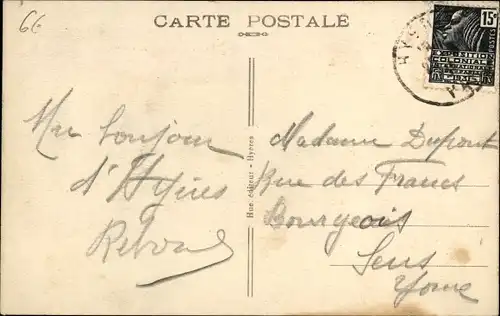 66
CARTE POSTALE
15c
POSTES
EXPOSITION
COLONIALE
INTERNATIONALE
PARIS
Un bonjour
d'Hyères
Madame Dupont
Rue des Francs
Bourgeois
Sens
Yonne
Hue éditeur - Hyères